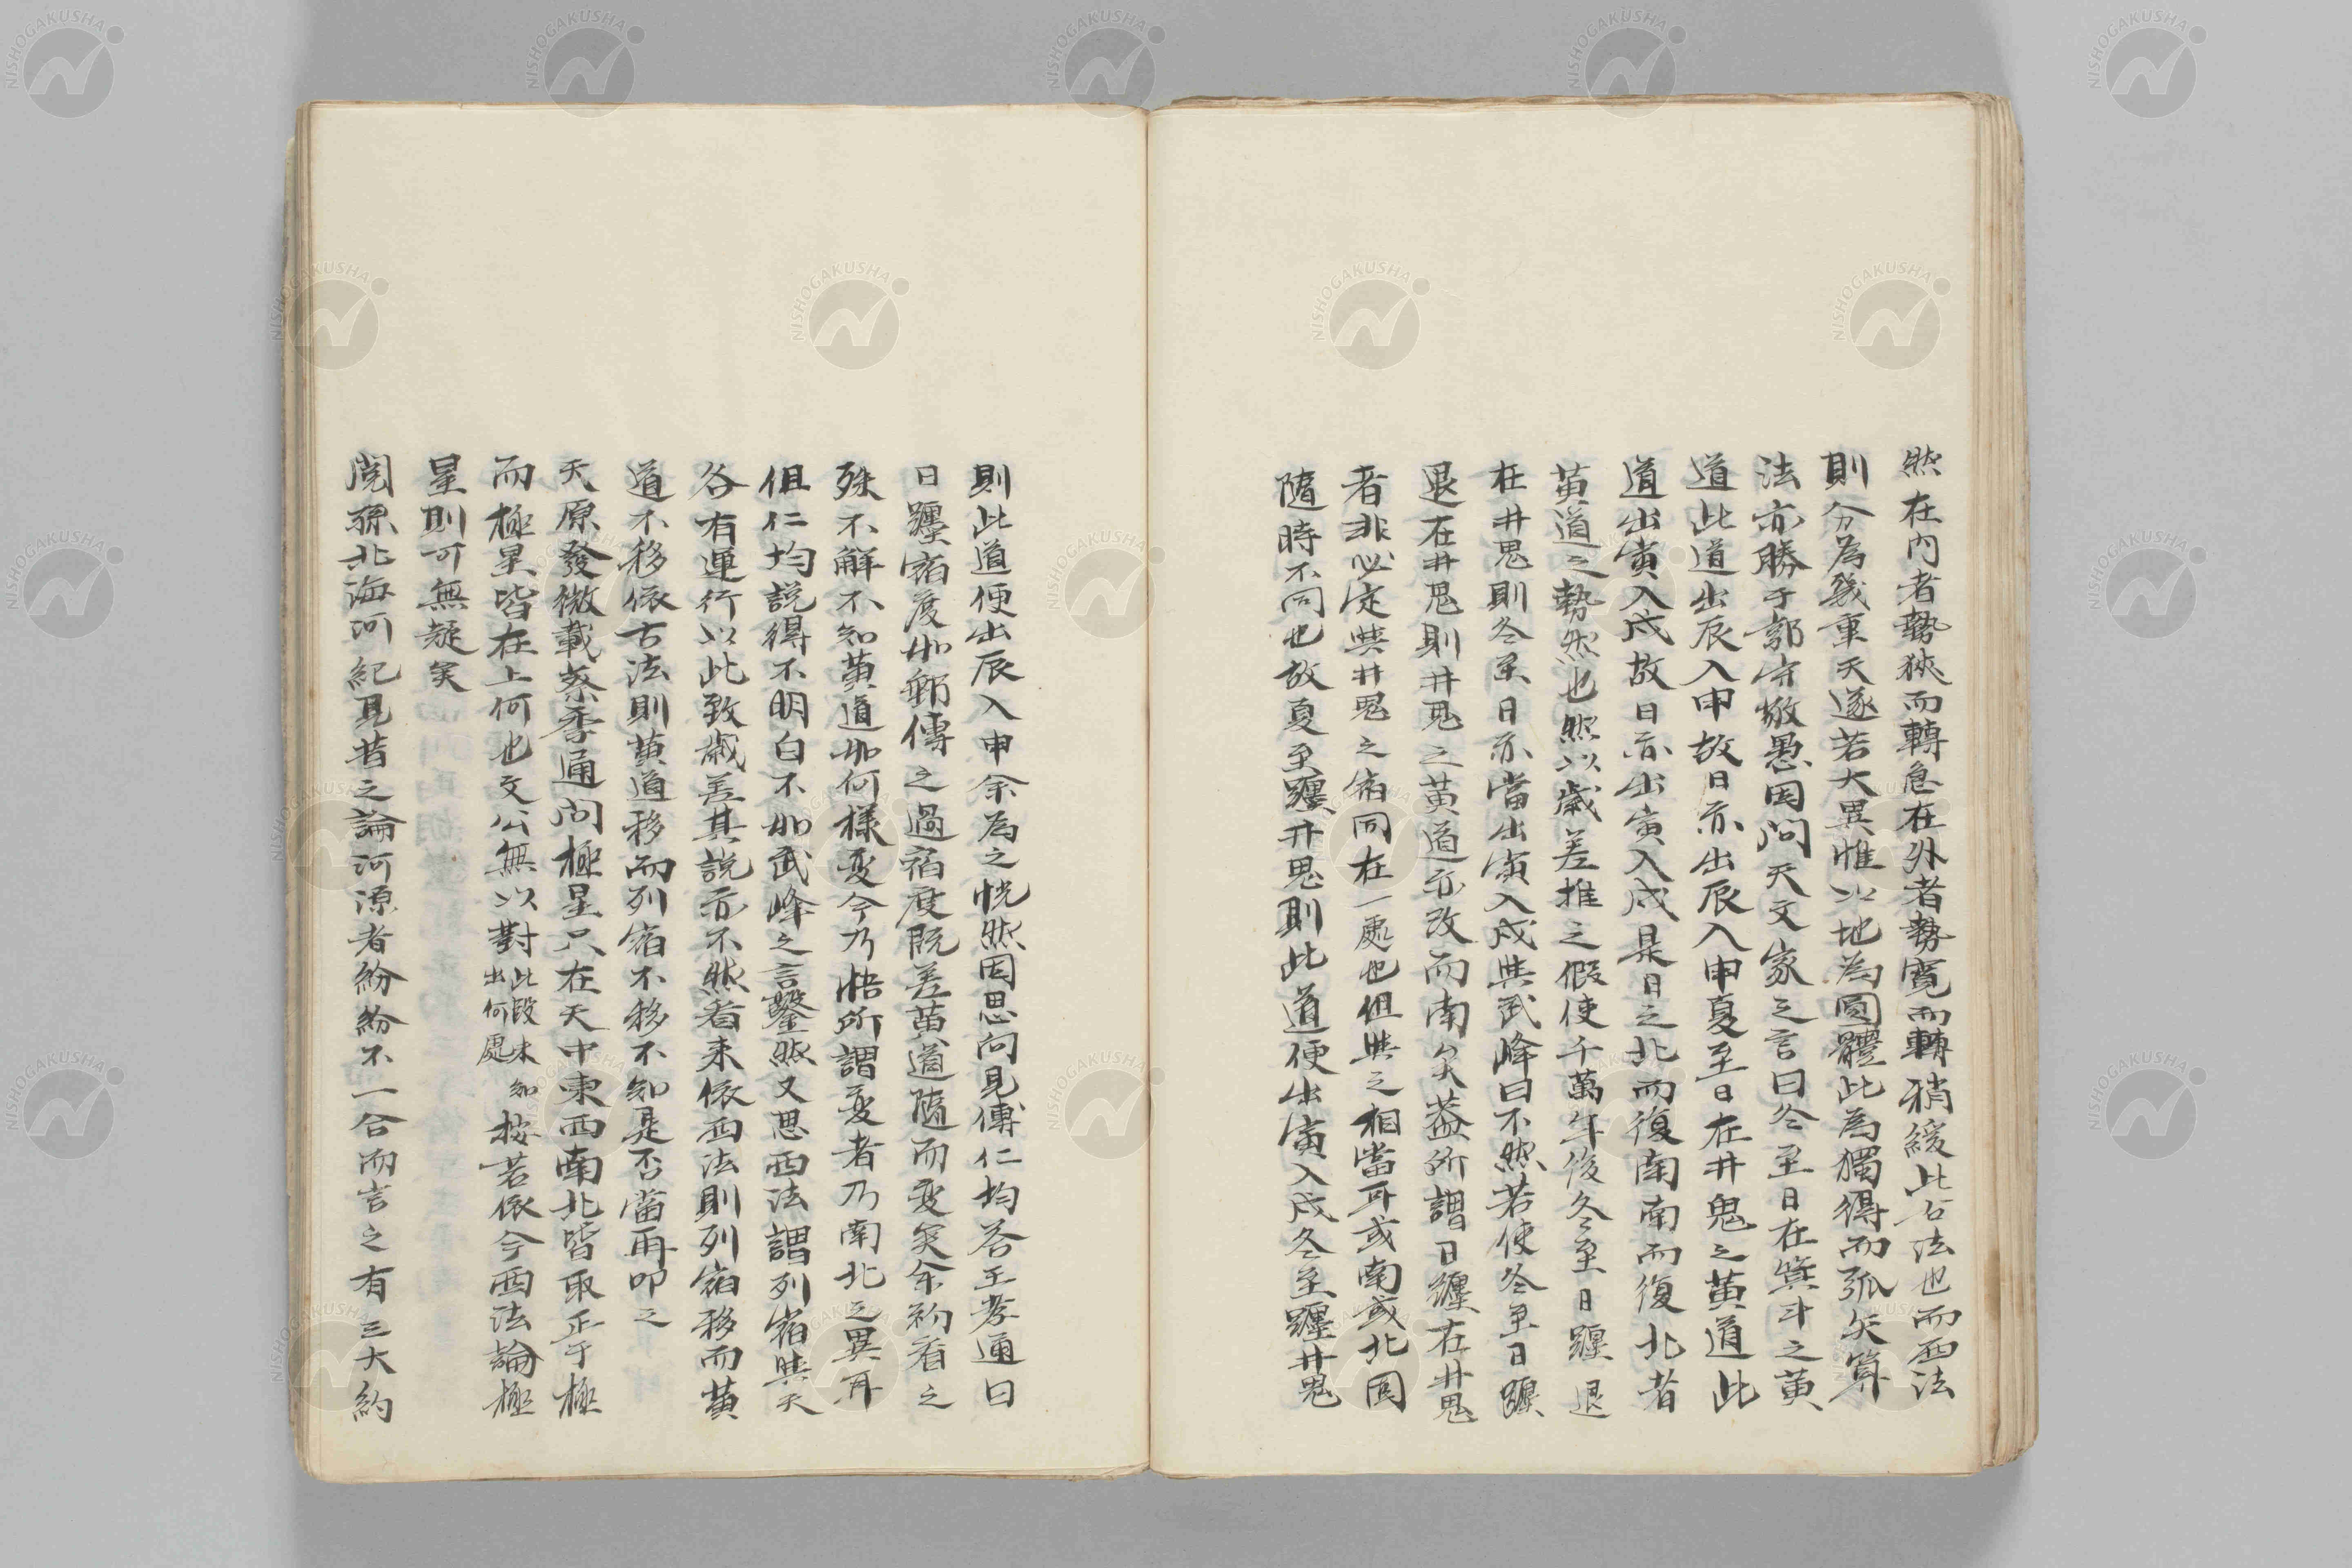 然在内者勢狹而轉急在外者勢寬而轉稍緩此古法也而西法
則分為幾重天遂若大異惟以地為圓體此為獨得而弧矢算
法亦勝于郭守敬愚因問天文家之言曰冬至日在箕斗之黄
道此道出辰入申故日亦出辰入申夏至日在井鬼之黄道此
道出寅入戍故日亦出寅入戍是日之北而復南南而復北者
黄道之勢然也然以歳差推之假使千萬年後冬至日躔退
在井鬼則冬至日亦當出寅入戍與武峰曰不然若使冬至日躔
退在井鬼則井鬼之黄道亦改而南矣蓋所謂日纏在井鬼
者非必定與井鬼之宿同在一處也但與之相當耳或南或北固
隨時不同也故夏至躔井鬼則此道便出寅入戍冬至躔井鬼
則此道便出辰入申余為之恍然因思向見傅仁均答王孝通曰
日躔宿度如郵傳之過宿度既差黄道隨而変矣余初看之
殊不解不知黄道如何樣変今乃悟所謂変者乃南北之異耳
但仁均説得不明白不如武峰之言鑿然又思西法謂列宿與天
各有運行以此致歳差其説亦不然看来依西法則列宿移而黄
道不移依古法則黄道移而列宿不移不知是否當再叩之
天原發微載蔡季通問極星只在天中東西南北皆取正于極
而極星皆在上何也文公無以對此段未知出何處按若依今西法論極
星則可無疑矣
閲孫北海河紀見昔之論河源者紛紛不一合而言之有三大約
NISHOGAKUSHA